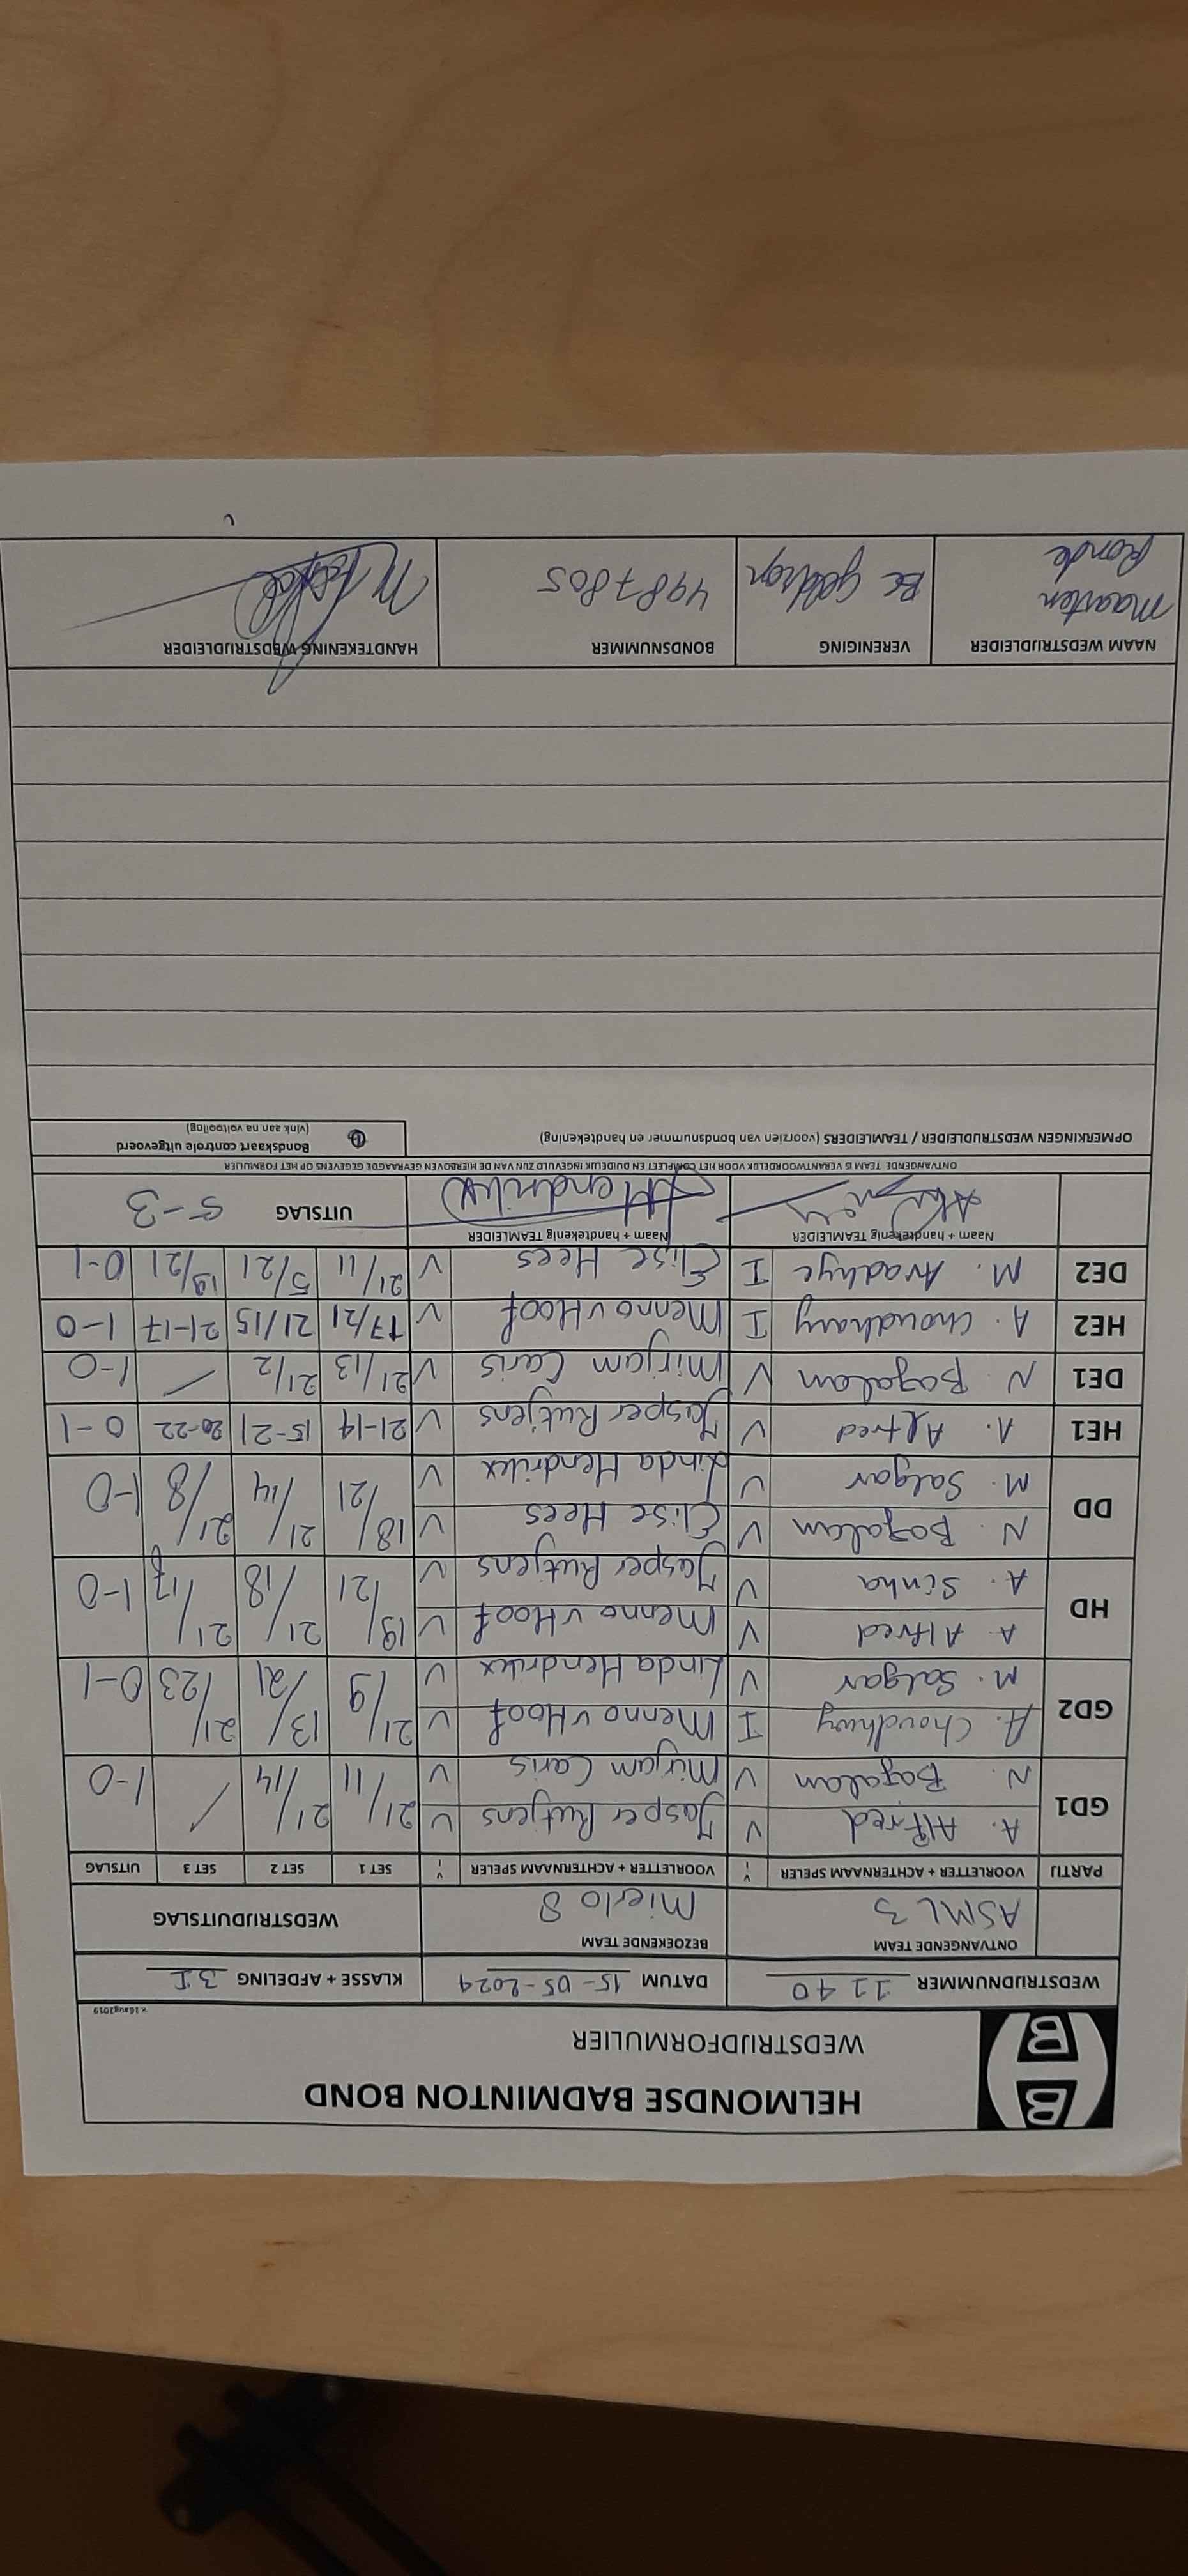 HELMONDSE BADMINTON BOND
WEDSTRIJDFORMULIER
v.16aug2019
WEDSTRIJDNUMMER 1140 DATUM 15-05-2024 KLASSE + AFDELING 3I
ONTVANGENDE TEAM BEZOEKENDE TEAM
ASML 3 Mierlo 8 WEDSTRIJDUITSLAG
PARTIJ VOORLETTER + ACHTERNAAM SPELER V VOORLETTER + ACHTERNAAM SPELER V SET 1 SET 2 SET 3 UITSLAG
GD1 A. Alfred V Jasper Rutjens V 21/11 21/14 / 1-0
N. Bagalam V Mirjam Caris V
GD2 A. Choudhary I Menno v Hoof V 21/9 13/21 21/23 0-1
M. Salgar V Linda Hendrikx V
HD A. Alfred V Menno v Hoof V 19/21 21/18 21/17 1-0
A. Sinha V Jasper Rutjens V
DD N. Bagalam V Elise Hees V 18/21 21/14 21/8 1-0
M. Salgar V Linda Hendrikx V
HE1 A. Alfred V Jasper Rutjens V 21-14 15-21 20-22 0-1
DE1 N. Bagalam V Mirjam Caris V 21/13 21/2 / 1-0
HE2 A. Choudhary I Menno v Hoof V 17/21 21/15 21-17 1-0
DE2 M. Avadhye I Elise Hees V 21/11 5/21 19/21 0-1
Naam + handtekenig TEAMLEIDER Naam + handtekenig TEAMLEIDER
Hendrikx UITSLAG 5-3
ONTVANGENDE TEAM IS VERANTWOORDELIJK VOOR HET COMPLEET EN DUIDELIJK INGEVULD ZIJN VAN DE HIERBOVEN GEVRAAGDE GEGEVENS OP HET FORMULIER
OPMERKINGEN WEDSTRIJDLEIDER / TEAMLEIDERS (voorzien van bondsnummer en handtekening)
Bondskaart controle uitgevoerd
(vink aan na voltooiing)
NAAM WEDSTRIJDLEIDER VERENIGING BONDSNUMMER HANDTEKENING WEDSTRIJDLEIDER
Maarten BC Geldrop 4987805
Ronde